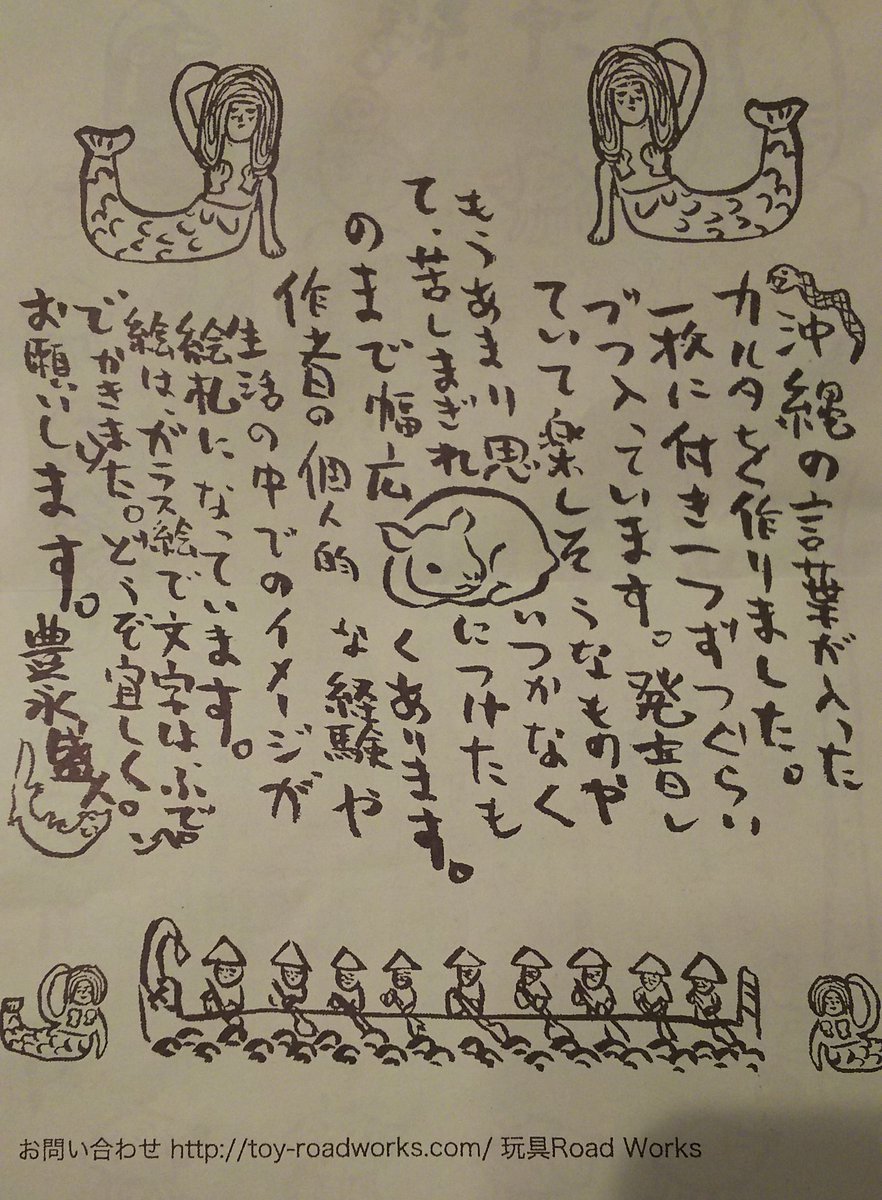 沖縄の言葉が入った
カルタを作りました。
一枚に付き一つずつぐらい
づつ入っています。発音し
ていて楽しそうなものや
もうあまり思いつかなく
て、苦しまぎれにつけたも
のまで幅広くあります。
作者の個人的な経験や
生活の中でのイメージが
絵札になっています。
絵は、ガラス絵で文字はふでペン
でかきました。どうぞ宜しく。
お願いします。豊永盛人
お問い合わせ http://toy-roadworks.com/ 玩具Road Works